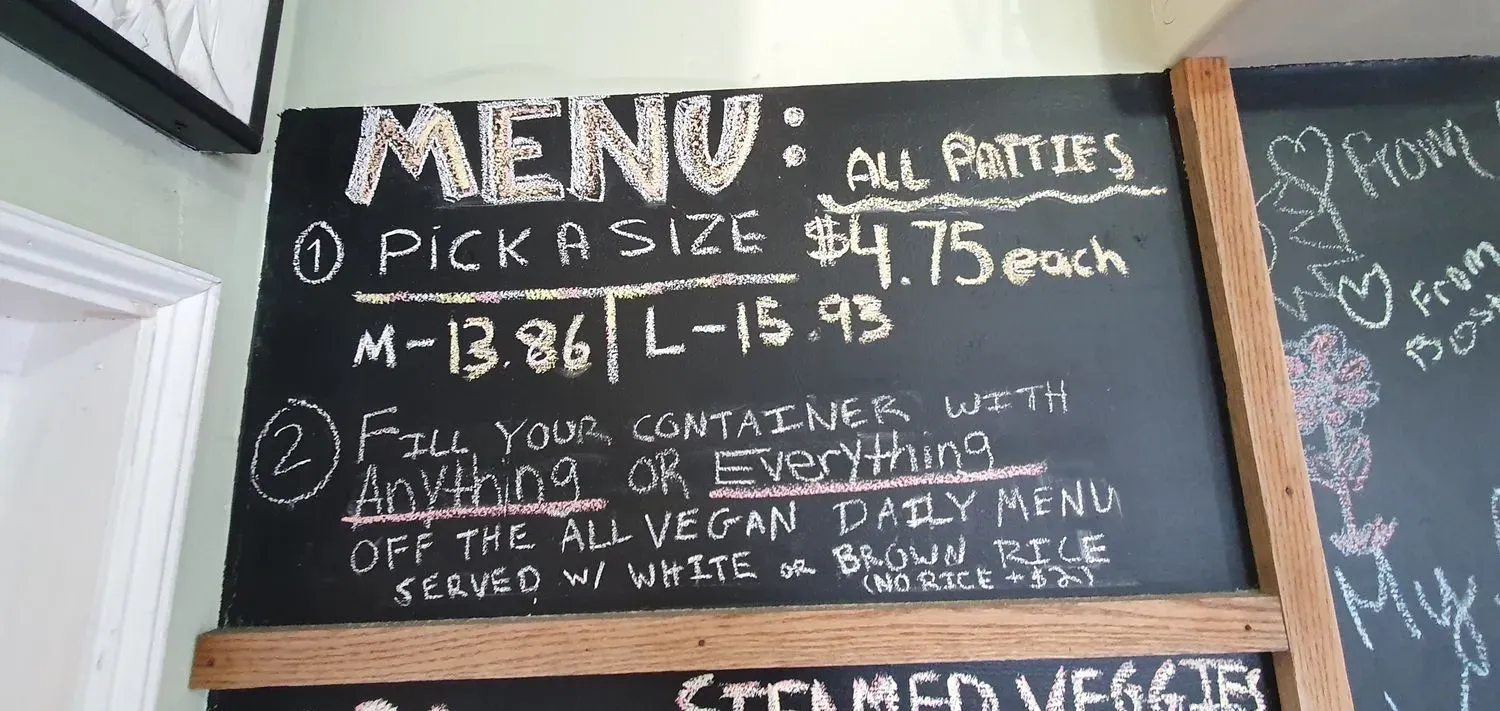 MENU:
ALL PATTIES
$4.75 each
① PICK A SIZE
M-13.86 | L-15.93
② FILL YOUR CONTAINER WITH
Anything OR Everything
OFF THE ALL VEGAN DAILY MENU
SERVED W/ WHITE OR BROWN RICE
(NO RICE + $2)
STEAMED VEGGIES
From
From
My